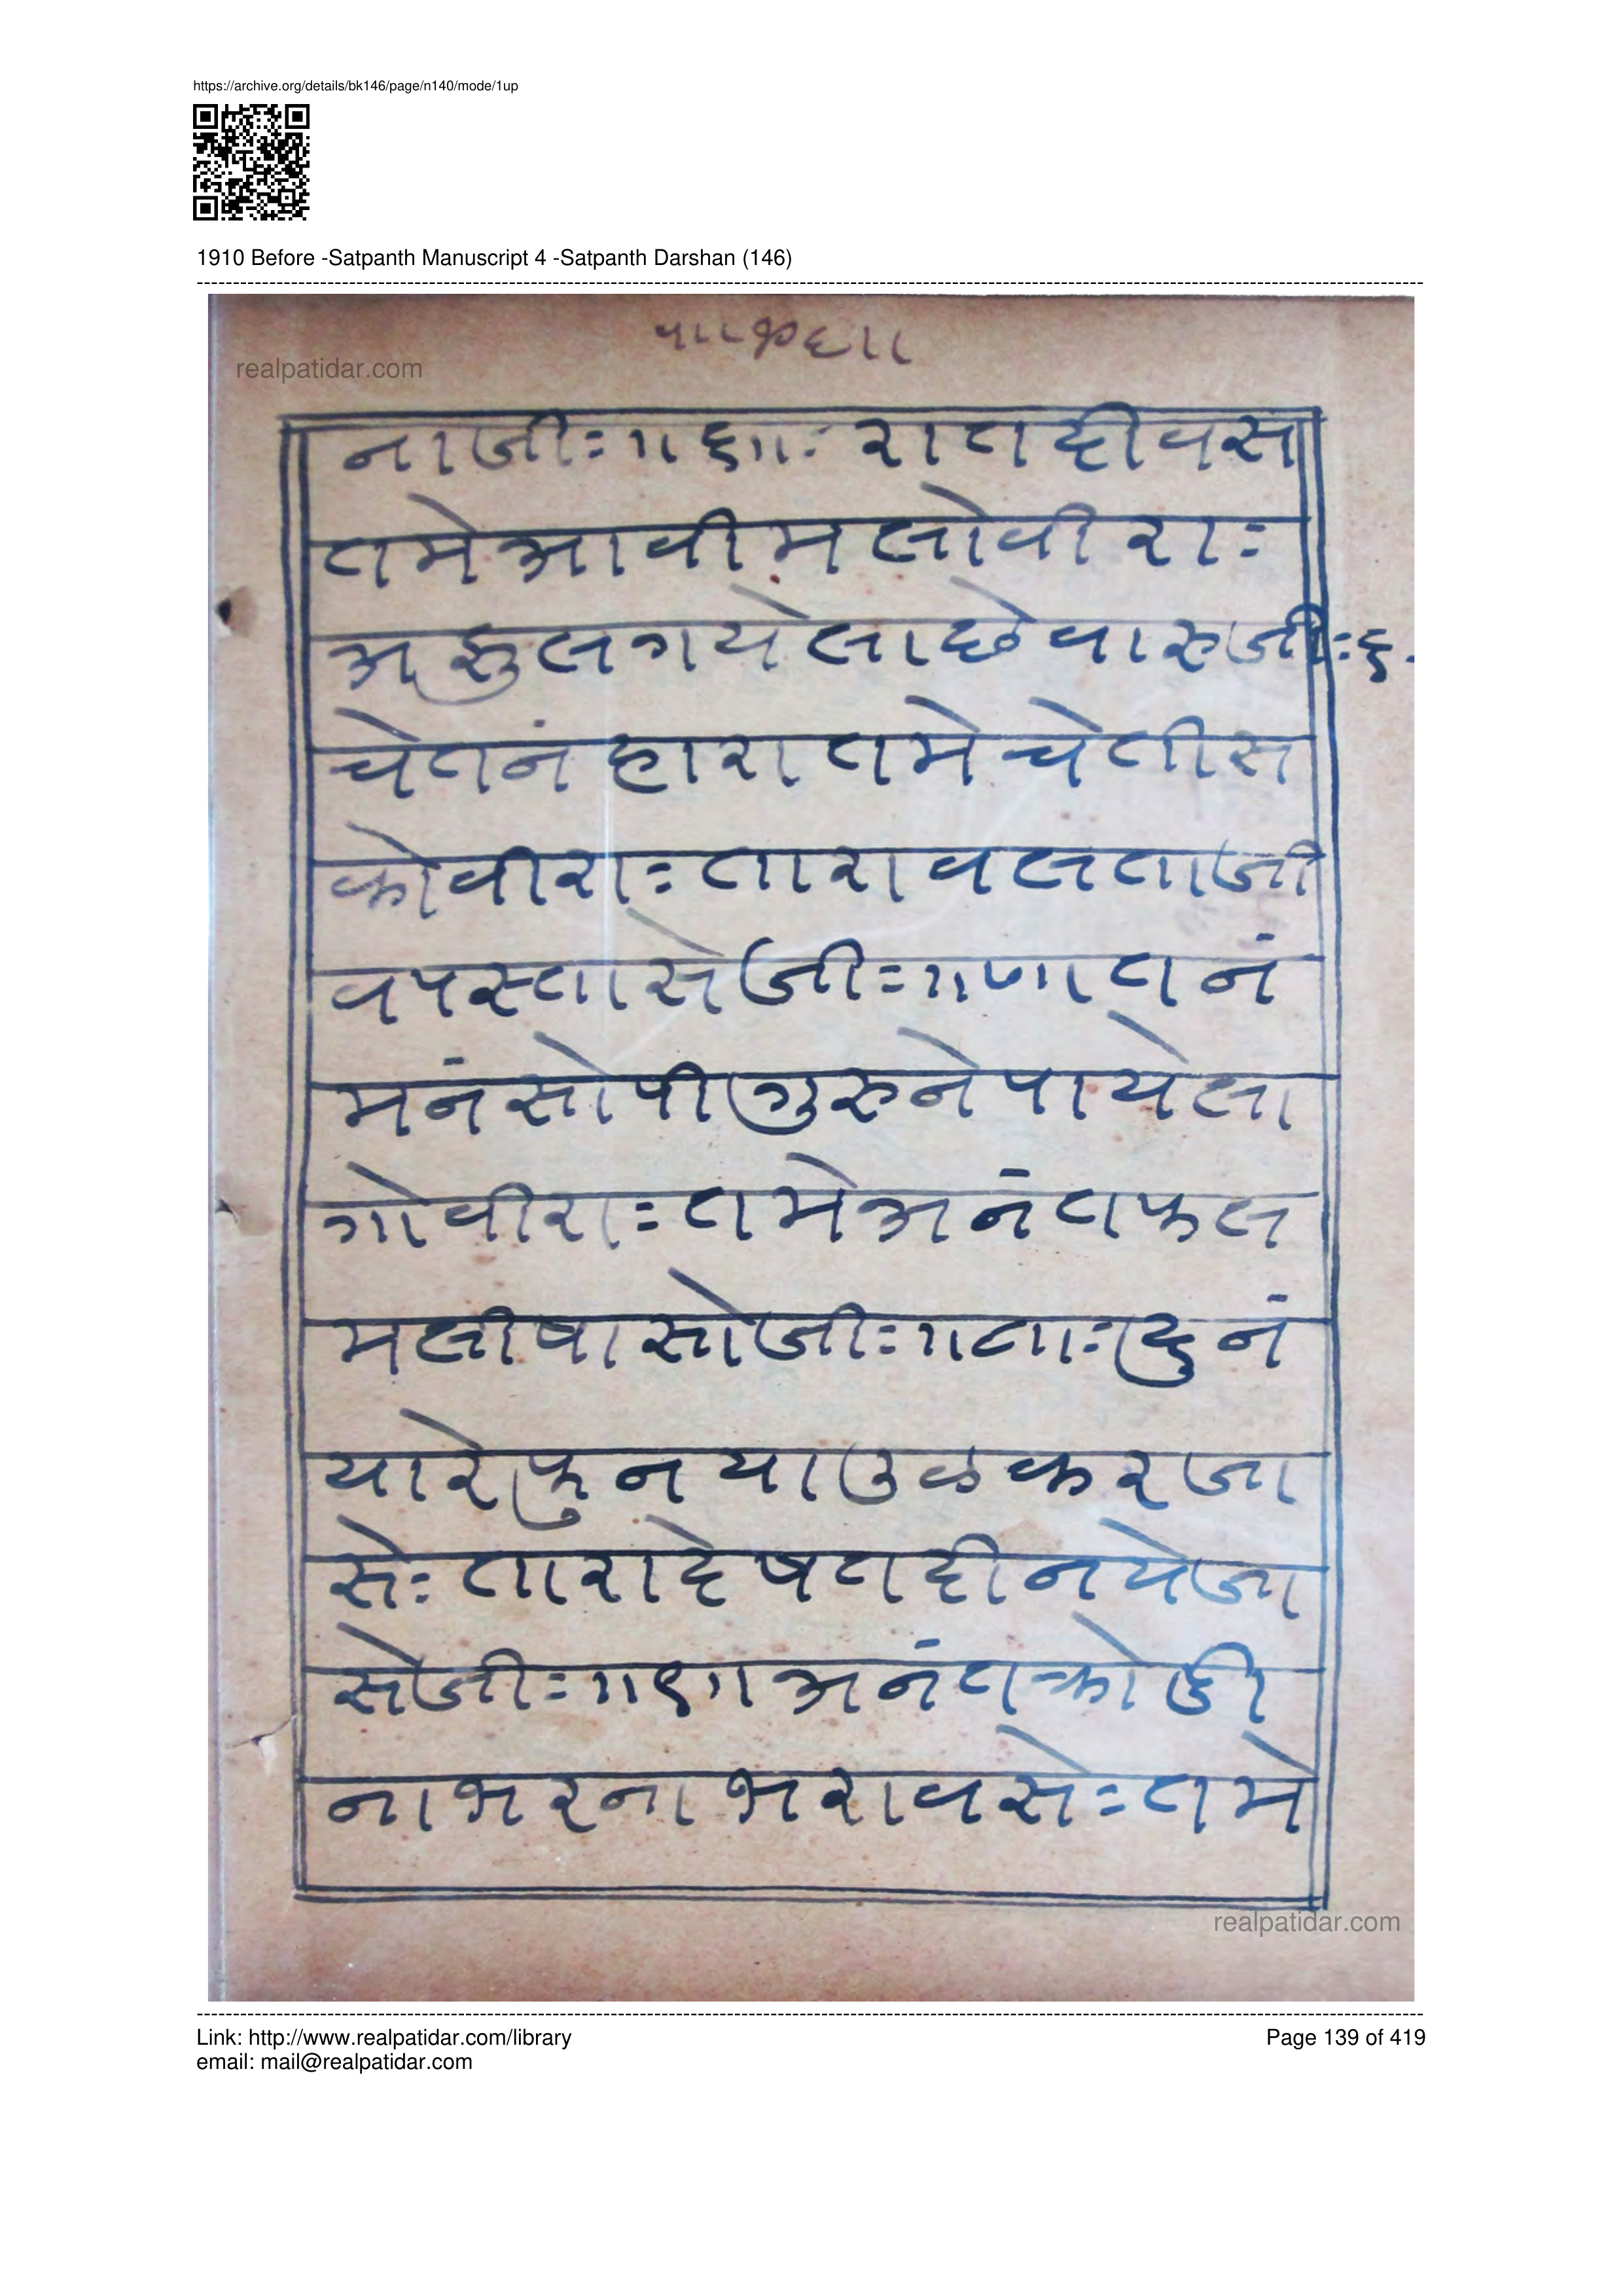 https://archive.org/details/bk146/page/n140/mode/1up
1910 Before -Satpanth Manuscript 4 -Satpanth Darshan (146)
realpatidar.com
नाजीः॥६॥ः रात दीवस
तमे आवी मलो वीराः
अ लगये ला छे वारुजीः६
चेतनं हारा तमे चेतीस
को वीराः तारा वलताजी
व पस्तासेजीः॥७॥ तनं
मनं सोपी गुरुने पाये ला
गो वीराः तमे अनंत फल
मली षासोजीः॥८॥ः दुनं
यारे फुनया उळ कर जा
सेः तारा देषत दीन ये जा
सेजीः॥९॥ अनंत क्रोडी
ना भरना भरावसेः तमे
realpatidar.com
Link: http://www.realpatidar.com/library
Page 139 of 419
email: mail@realpatidar.com